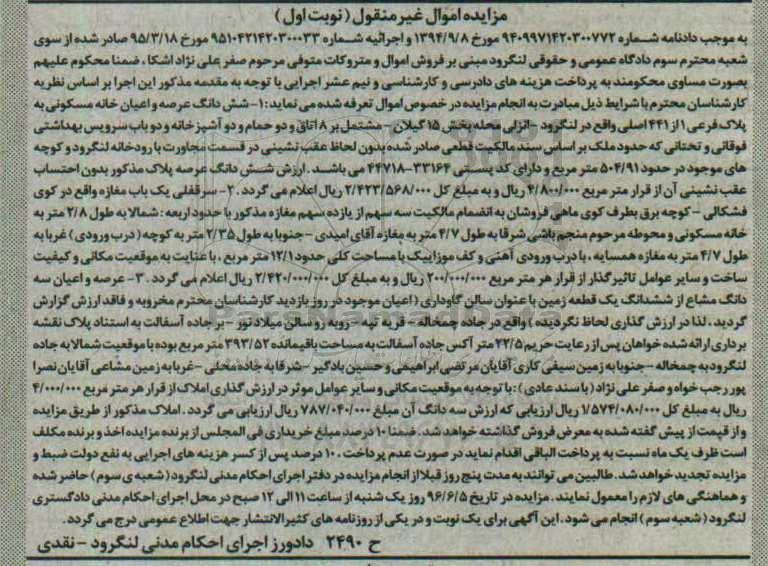 مزایده اموال غیر منقول (نوبت اول)
به موجب دادنامه شماره ۹۴۰۹۹۷۱۴۲۰۳۰۰۷۷۲ مورخ ۱۳۹۴/۹/۸ و اجرائیه شماره ۹۵۱۰۴۲۱۴۲۰۳۰۰۰۳۳ مورخ ۹۵/۳/۱۸ صادر شده از سوی
شعبه محترم سوم دادگاه عمومی و حقوقی لنگرود مبنی بر فروش اموال و متروکات متوفی مرحوم صفر علی نژاد اشکا، ضمنا محکوم علیهم
بصورت مساوی محکومند به پرداخت هزینه های دادرسی و کارشناسی و نیم عشر اجرایی با توجه به مقدمه مذکور این اجرا بر اساس نظریه
کارشناسان محترم با شرایط ذیل مبادرت به انجام مزایده در خصوص اموال تعرفه شده می نماید: ۱- شش دانگ عرصه و اعیان خانه مسکونی به
پلاک فرعی ۱ از ۴۴۱ اصلی واقع در لنگرود - انزلی محله بخش ۱۵ گیلان - مشتمل بر ۸ اتاق و دو حمام و دو آشپزخانه و دو باب سرویس بهداشتی
فوقانی و تحتانی که حدود ملک بر اساس سند مالکیت قطعی صادر شده بدون لحاظ عقب نشینی در قسمت مجاورت با رودخانه لنگرود و کوچه
های موجود در حدود ۵۰۴/۹۱ متر مربع و دارای کد پستی ۳۳۱۶۴-۴۴۷۱۸ می باشد. ارزش شش دانگ عرصه پلاک مذکور بدون احتساب
عقب نشینی آن از قرار متر مربع ۴/۸۰۰/۰۰۰ ریال و به مبلغ کل ۲/۴۲۳/۵۶۸/۰۰۰ ریال اعلام می گردد. ۲- سرقفلی یک باب مغازه واقع در کوی
فشکالی - کوچه برق بطرف کوی ماهی فروشان به انضمام مالکیت سه سهم از یازده سهم مغازه مذکور با حدود اربعه: شمالا به طول ۲/۸ متر به
خانه مسکونی و محوطه مرحوم منجم باشی شرقا به طول ۴/۷ متر به مغازه آقای امیدی - جنوبا به طول ۲/۳۵ متر به کوچه (درب ورودی) غربا به
طول ۴/۷ متر به مغازه همسایه، با درب ورودی آهنی و کف موزاییک با مساحت کلی حدود ۱۲/۱ متر مربع، با عنایت به موقعیت مکانی و کیفیت
ساخت و سایر عوامل تاثیرگذار از قرار هر متر مربع ۲۰۰/۰۰۰/۰۰۰ ریال و به مبلغ کل ۲/۴۲۰/۰۰۰/۰۰۰ ریال اعلام می گردد. ۳- عرصه و اعیان سه
دانگ مشاع از ششدانگ یک قطعه زمین با عنوان سالن گاوداری (اعیان موجود در روز بازدید کارشناسان محترم مخروبه و فاقد ارزش گزارش
گردید، لذا در ارزش گذاری لحاظ نگردیده) واقع در جاده چمخاله - قریه تپه - روبه رو سالن میلاد نور - بر جاده آسفالت به استناد پلاک نقشه
برداری ارائه شده خواهان پس از رعایت حریم ۲۲/۵ متر آکس جاده آسفالت به مساحت باقیمانده ۳۹۳/۵۲ متر مربع بوده با موقعیت شمالا به جاده
لنگرود به چمخاله - جنوبا به زمین سیفی کاری آقایان مرتضی ابراهیمی و حسین یادگیر - شرقا به جاده محلی - غربا به زمین مشاعی آقایان نصرا
پور رجب خواه و صفر علی نژاد (با سند عادی): با توجه به موقعیت مکانی و سایر عوامل موثر در ارزش گذاری املاک از قرار هر متر مربع ۴/۰۰۰/۰۰۰
ریال به مبلغ کل ۱/۵۷۴/۰۸۰/۰۰۰ ریال ارزیابی که ارزش سه دانگ آن مبلغ ۷۸۷/۰۴۰/۰۰۰ ریال ارزیابی می گردد. املاک مذکور از طریق مزایده
و از قیمت از پیش گفته شده به معرض فروش گذاشته خواهد شد. ضمنا ۱۰ درصد مبلغ خریداری فی المجلس از برنده مزایده اخذ و برنده مکلف
است ظرف یک ماه نسبت به پرداخت الباقی اقدام نماید در صورت عدم پرداخت، ۱۰ درصد پس از کسر هزینه های اجرایی به نفع دولت ضبط و
مزایده تجدید خواهد شد. طالبین می توانند به مدت پنج روز قبل از انجام مزایده در دفتر اجرای احکام مدنی لنگرود (شعبه ی سوم) حاضر شده
و هماهنگی های لازم را معمول نمایند. مزایده در تاریخ ۹۶/۶/۵ روز یک شنبه از ساعت ۱۱ الی ۱۲ صبح در محل اجرای احکام مدنی دادگستری
لنگرود (شعبه سوم) انجام می شود. این آگهی برای یک نوبت و در یکی از روزنامه های کثیرالانتشار جهت اطلاع عمومی درج می گردد.
ح ۲۴۹۰ دادورز اجرای احکام مدنی لنگرود - نقدی
ParsNamadData